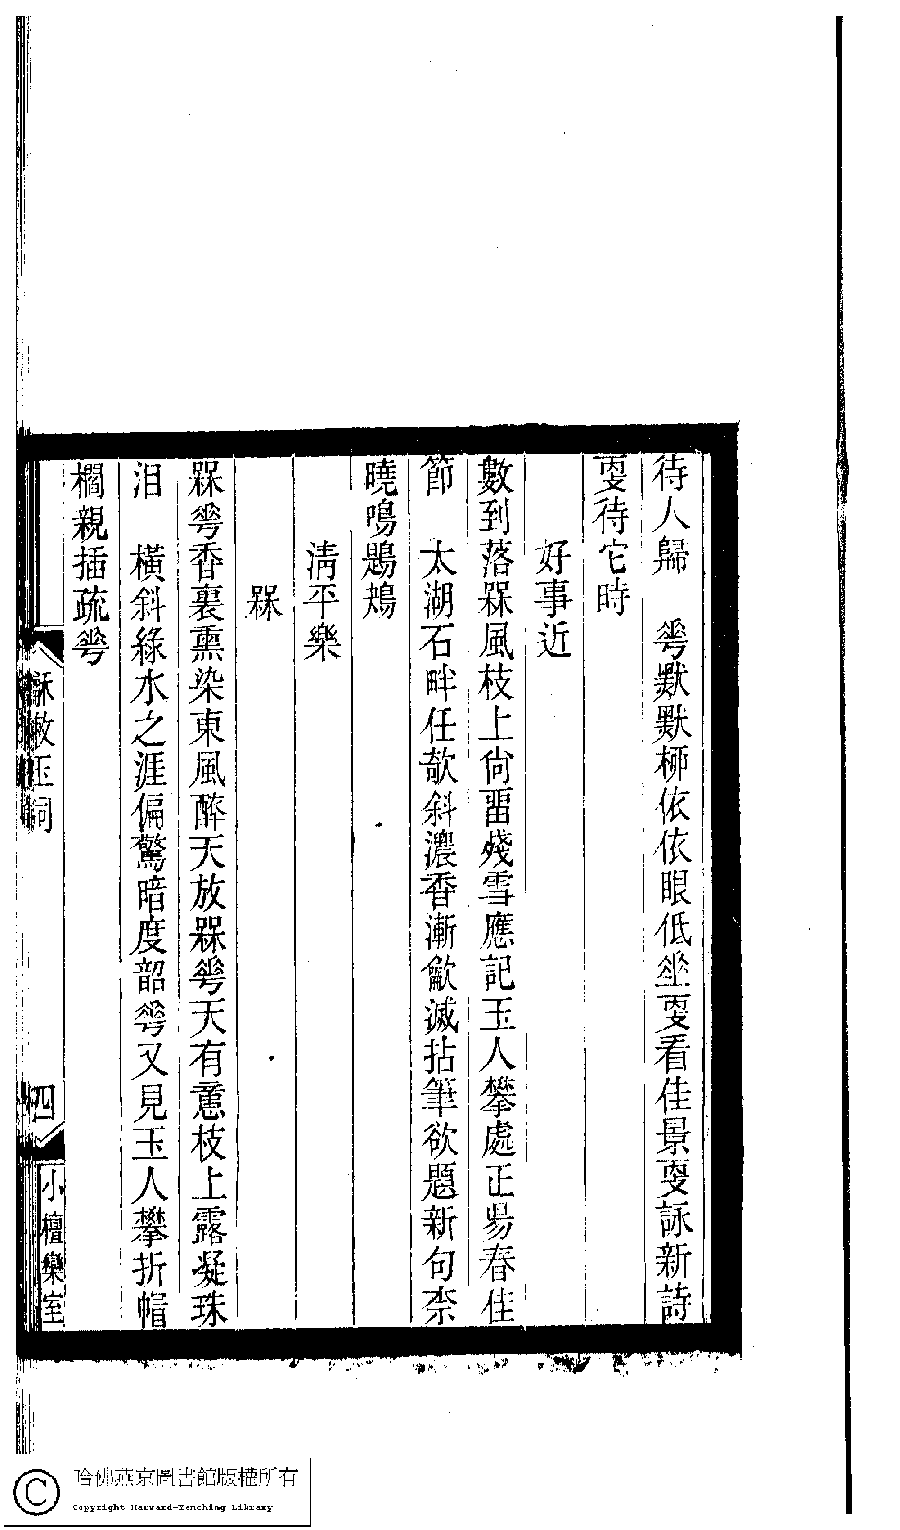 待人歸　𠌶默默桺依依眼低坐㪅看佳景㪅詠新詩
㪅待它時
好事近
數到落槑風枝上尙畱殘雪應記玉人攀處正昜春佳
節　太湖石畔任欹斜濃香漸歛滅拈筆欲題新句柰
曉鳴鶗鴂
清平樂
槑
槑𠌶香裏熏染東風醉天放槑𠌶天有意枝上露凝珠
泪　橫斜綠水之涯偏驚暗度韶𠌶又見玉人攀折帽
櫩親插疏𠌶
龢漱玉詞
四
小檀欒室
哈佛燕京圖書館版權所有
Copyright Harvard-Yenching Library